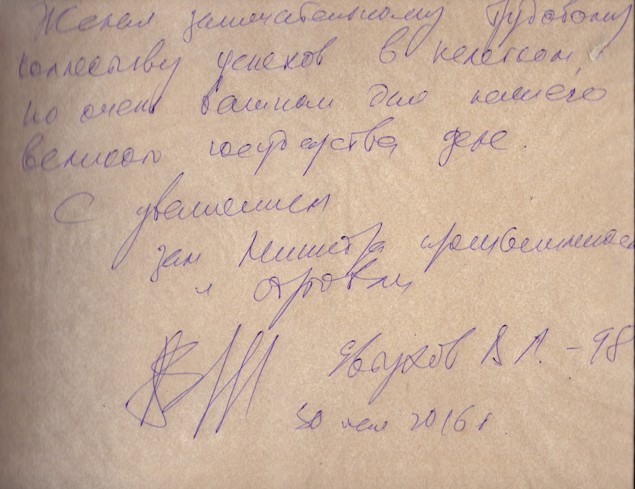 Желаю замечательному трудовому
коллективу успехов в нелегком,
но очень важном для нашего
великого государства деле.
С уважением
зам Министра промышленнос
и торговли
В Л.
30 мая 2016 г